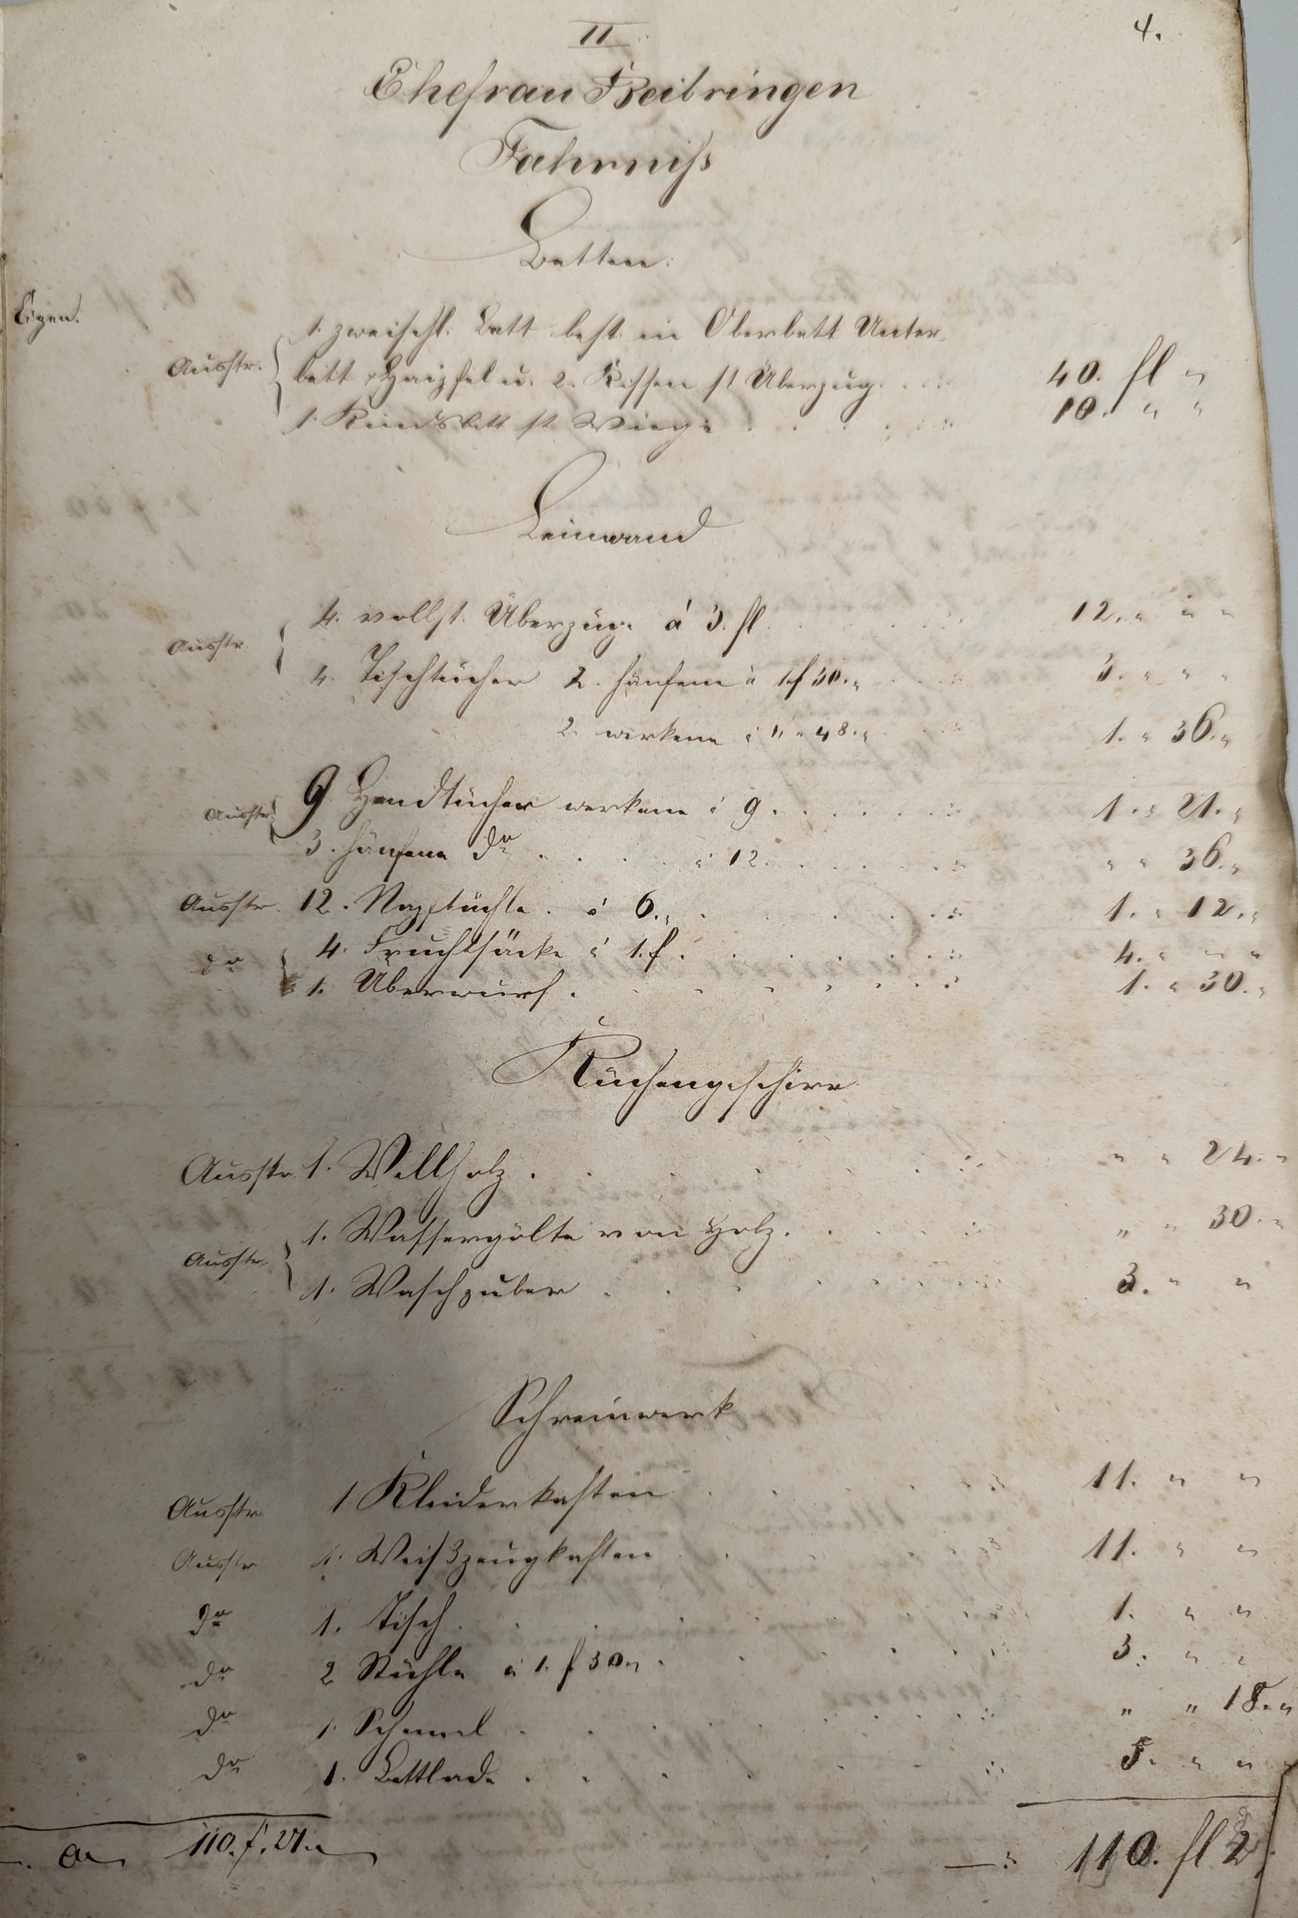 II
4.
Ehefrau Beibringen
Fahrniß
Betten:
Eigen.
1. zweischl. Bett best. in Oberbett Unter-
Ausstr. bett, Haipfel u. 2. Kissen st Überzug. 40. fl "
1. Kindsbett st Wiege 10. " "
Leinwand
4. vollst. Überzüge á 3. fl. 12. " " "
Ausstr.
4. Tischtücher 2. hänfene á 1f 30. " 3. " " "
2. werkene á " " 48. " 1. " 36. "
Ausstr. 9 Handtücher werkene á 9. 1. " 21. "
3. hänfene do á 12. " " 36. "
Ausstr. 12. Nagtüchle. á 6. " 1. " 12. "
do 4. Fruchtsäcke á 1. f. 4. " " "
1. Überwurf. 1. " 30. "
Küchengeschirr
Ausstr. 1. Wellholz. " " 24. "
1. Wassergölte von Holz. " " 30. "
Ausstr.
1. Waschzuber 3. " "
Schreinwerk
Ausstr 1 Kleiderkasten 11. " "
Ausstr 1. Weißzeugkasten 11. " "
do 1. Tisch. 1. " "
do 2 Stühle á 1. f 30 " 3. " "
do 1. Schemel " " 18. "
do 1. Bettlade 5. " "
110. f. 27. "
110. fl 2